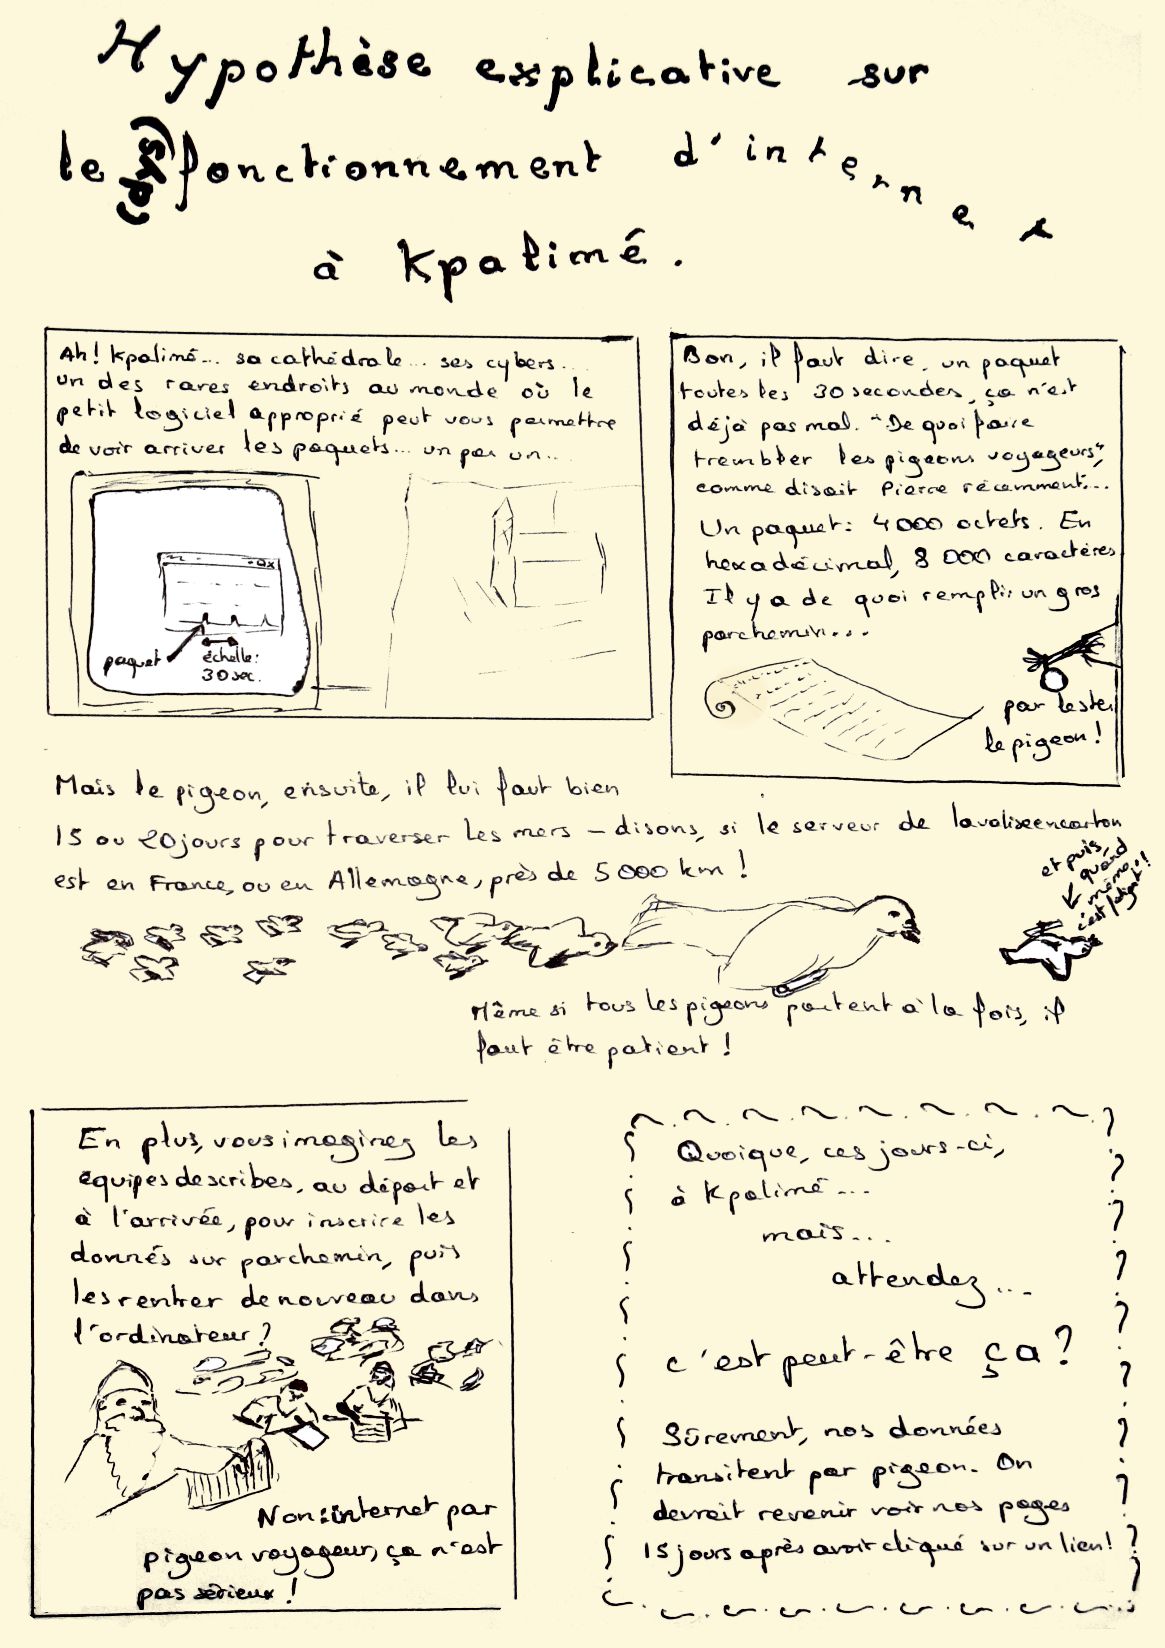 Hypothèse explicative sur
le (dys) fonctionnement d'internet
à Kpalimé.
Ah! Kpalimé... sa cathédrale... ses cybers...
un des rares endroits au monde où le
petit logiciel approprié peut vous permettre
de voir arriver les paquets... un par un...
paquet
échelle:
30 sec.
Bon, il faut dire, un paquet
toutes les 30 secondes, ça n'est
déjà pas mal. "De quoi faire
trembler les pigeons voyageurs",
comme disait Pierre récemment...
Un paquet: 4000 octets. En
hexadécimal, 8 000 caractères
Il y a de quoi remplir un gros
parchemin...
par lester
le pigeon!
Mais le pigeon, ensuite, il lui faut bien
15 ou 20 jours pour traverser les mers - disons, si le serveur de lavaliseencarton
est en France, ou en Allemagne, près de 5000 km!
et puis,
quand
même,
c'est fatigant!!
Même si tous les pigeons partent à la fois, il
faut être patient!
En plus, vous imaginez les
équipes de scribes, au départ et
à l'arrivée, pour inscrire les
donnés sur parchemin, puis
les rentrer de nouveau dans
l'ordinateur?
Non: internet par
pigeon voyageur, ça n'est
pas sérieux!
Quoique, ces jours-ci,
à Kpalimé...
mais...
attendez...
c'est peut-être ça?
Sûrement, nos données
transitent par pigeon. On
devrait revenir voir nos pages
15 jours après avoir cliqué sur un lien!